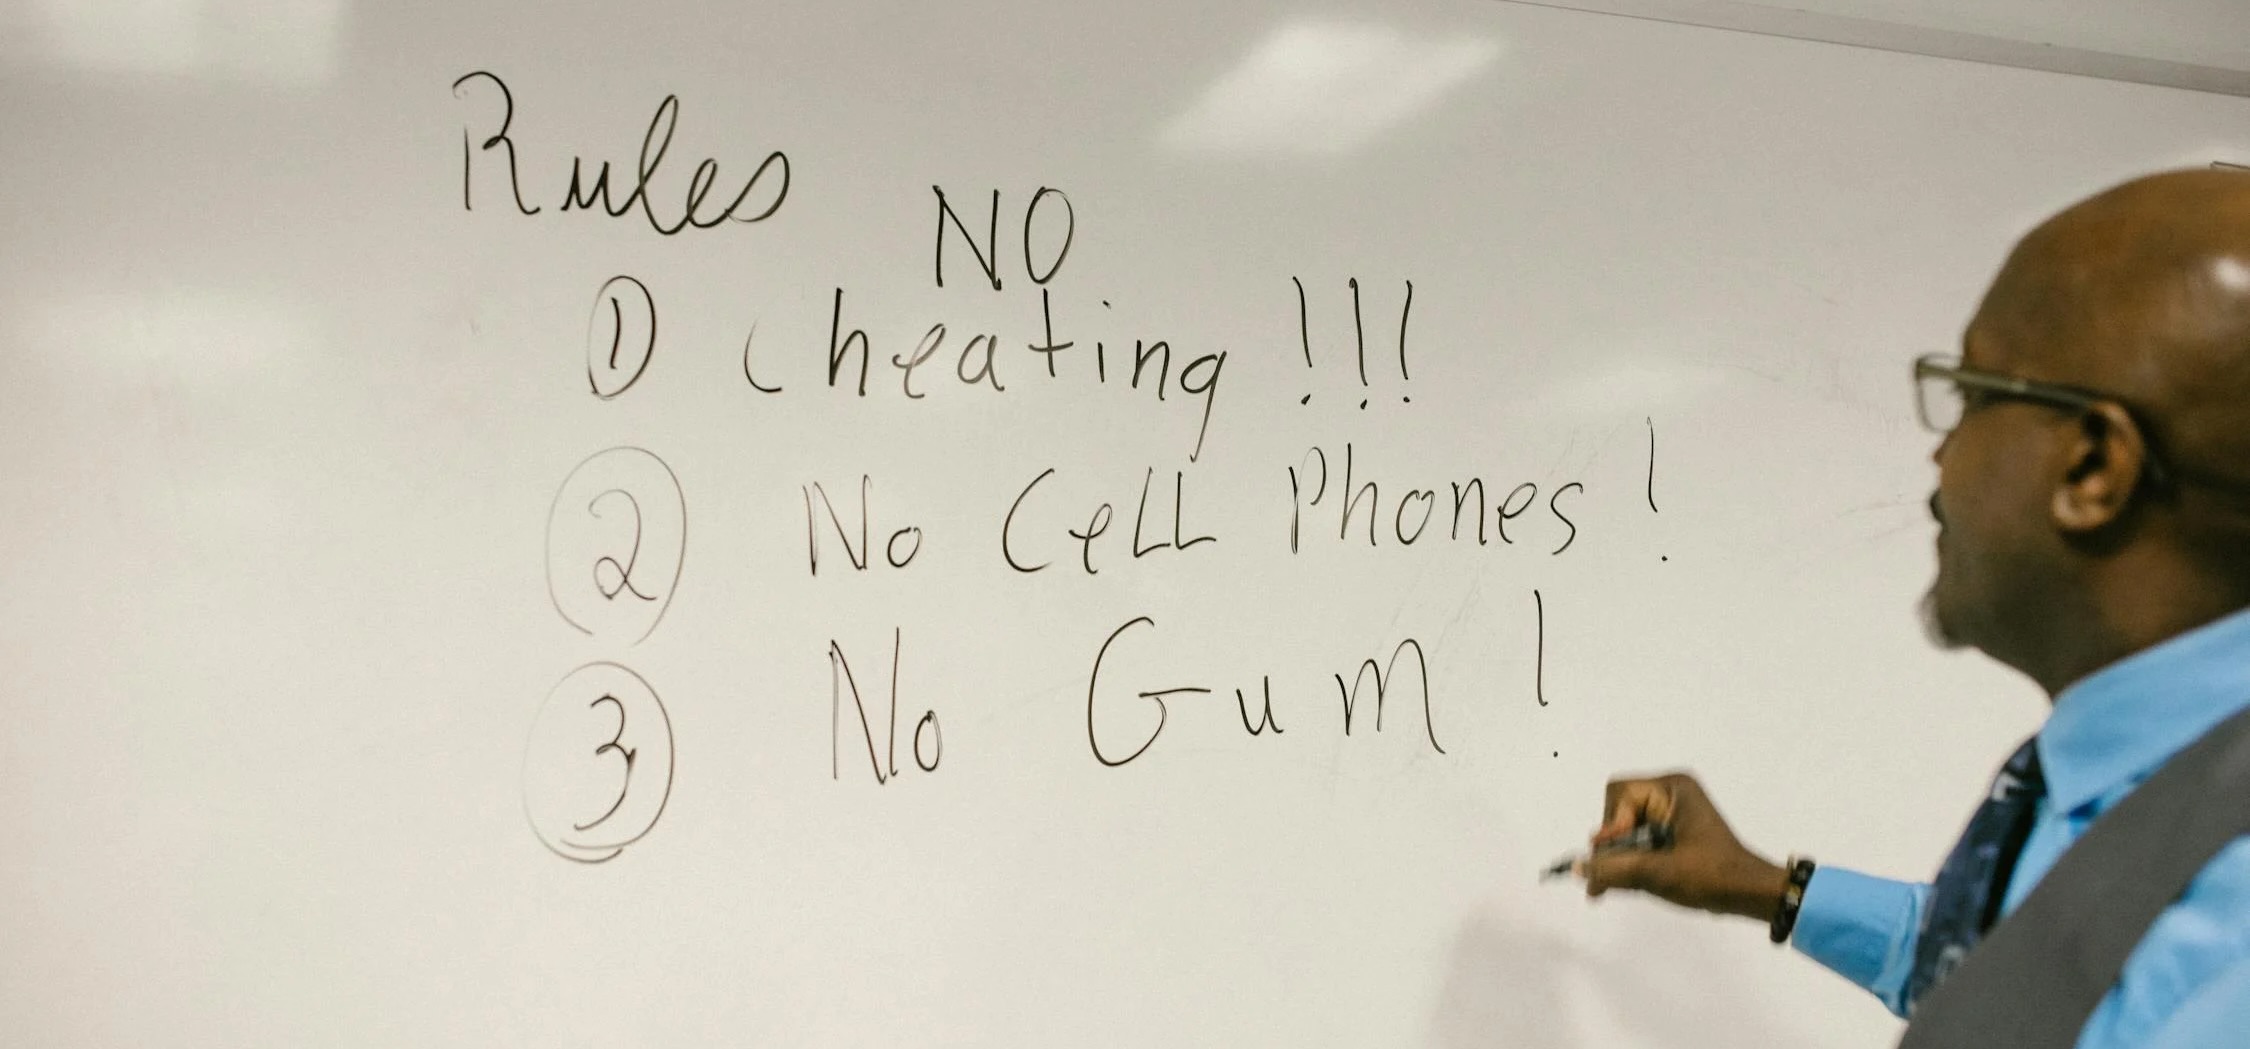 Rules
NO
① Cheating !!!
② No CeLL Phones !
③ No Gum !